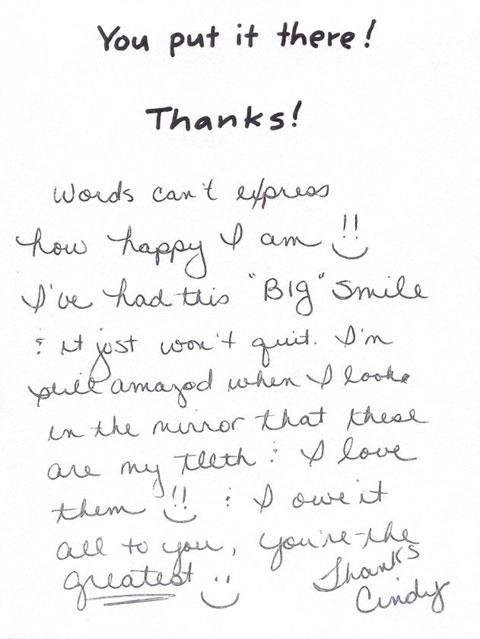 You put it there!
Thanks!
Words can't express
how happy I am !!
I've had this "BIG" Smile
& it just won't quit. I'm
still amazed when I looke
in the mirror that these
are my teeth & I love
them !! & I owe it
all to you, you're the
greatest
Thanks
Cindy